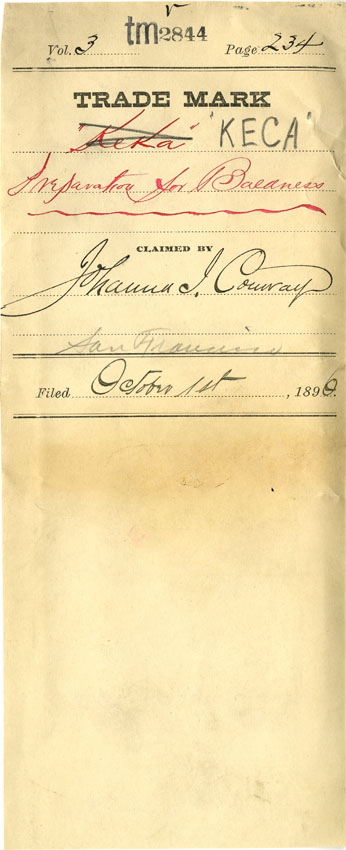 Vol. 3 tm2844 Page 234
TRADE MARK
"Keka" "KECA"
Preparation for Baldness
CLAIMED BY
Johanna I. Conway
San Francisco
Filed October 1st, 1896.